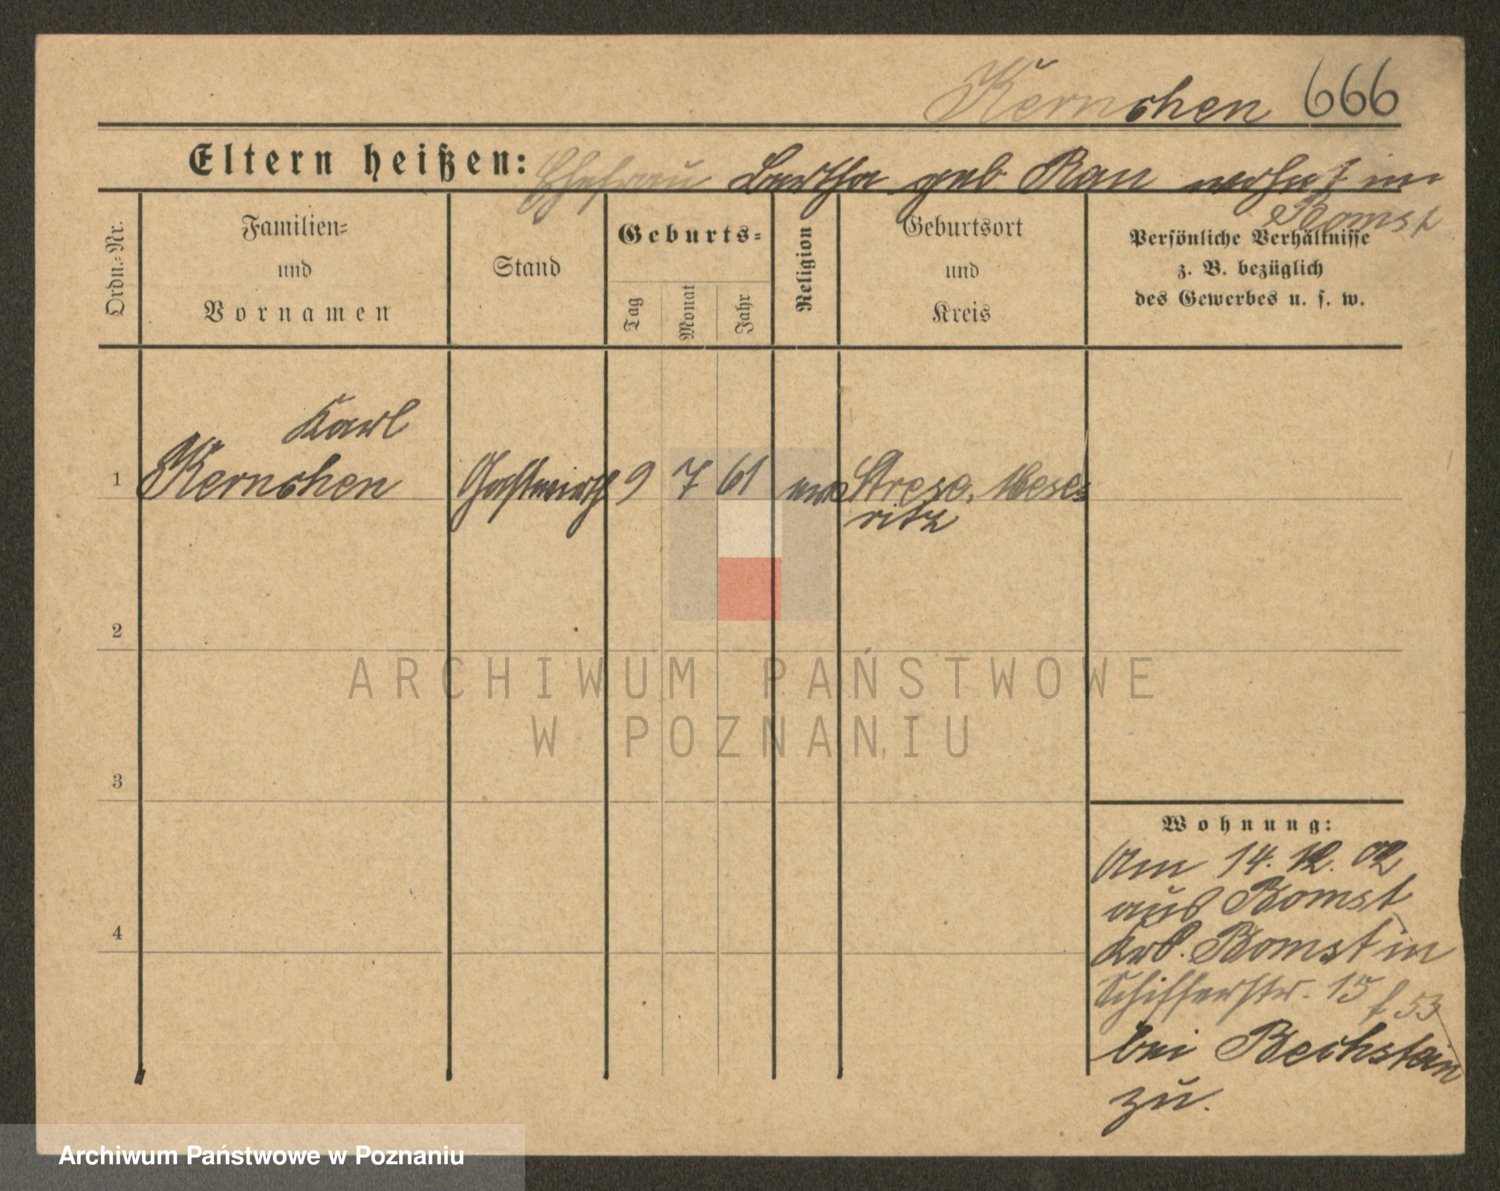 Kernchen 666
Eltern heißen: Ehefrau Bertha geb Rau wohnt in
Bomst
Ordn.-Nr.
Familien-
und
Vornamen
Stand
Geburts-
Tag
Monat
Jahr
Religion
Geburtsort
und
Kreis
Persönliche Verhältnisse
z. B. bezüglich
des Gewerbes u. s. w.
Karl
1 Kernchen Gastwirth 9 7 61 Strese, Mese-
ritz
2
3
4
Wohnung:
Am 14. 12. 02
aus Bomst
Krs. Bomst in
Schifferstr. 15 f 53
bei Bechstein
zu.
ARCHIWUM PAŃSTWOWE
W POZNANIU
Archiwum Państwowe w Poznaniu